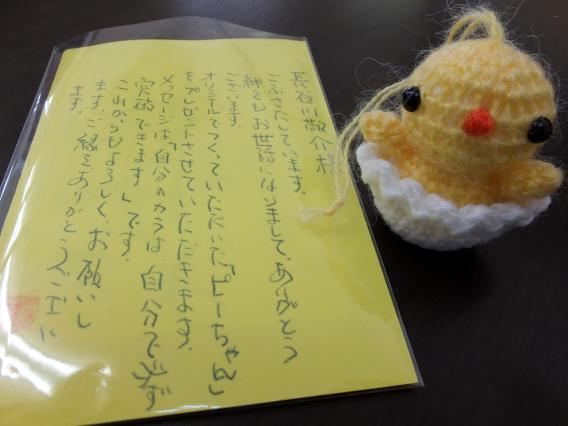 長谷川敬介様
ごぶさたしています。
絆でもお世話になりまして、ありがとう
ございます。
オリジナルでつくっていただいた「ピーちゃん」
をプレゼントさせていただきます。
メッセージは「自分のカラは、自分で必ず
突破できます」です。
これからもよろしくお願いし
ます。ご縁をありがとうござい
ます。